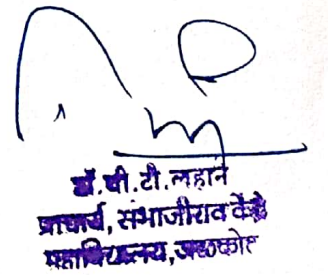 डॉ.पी.टी.लहाने
प्राचार्य, संभाजीराव केंद्रे
महाविद्यालय,जळकोट